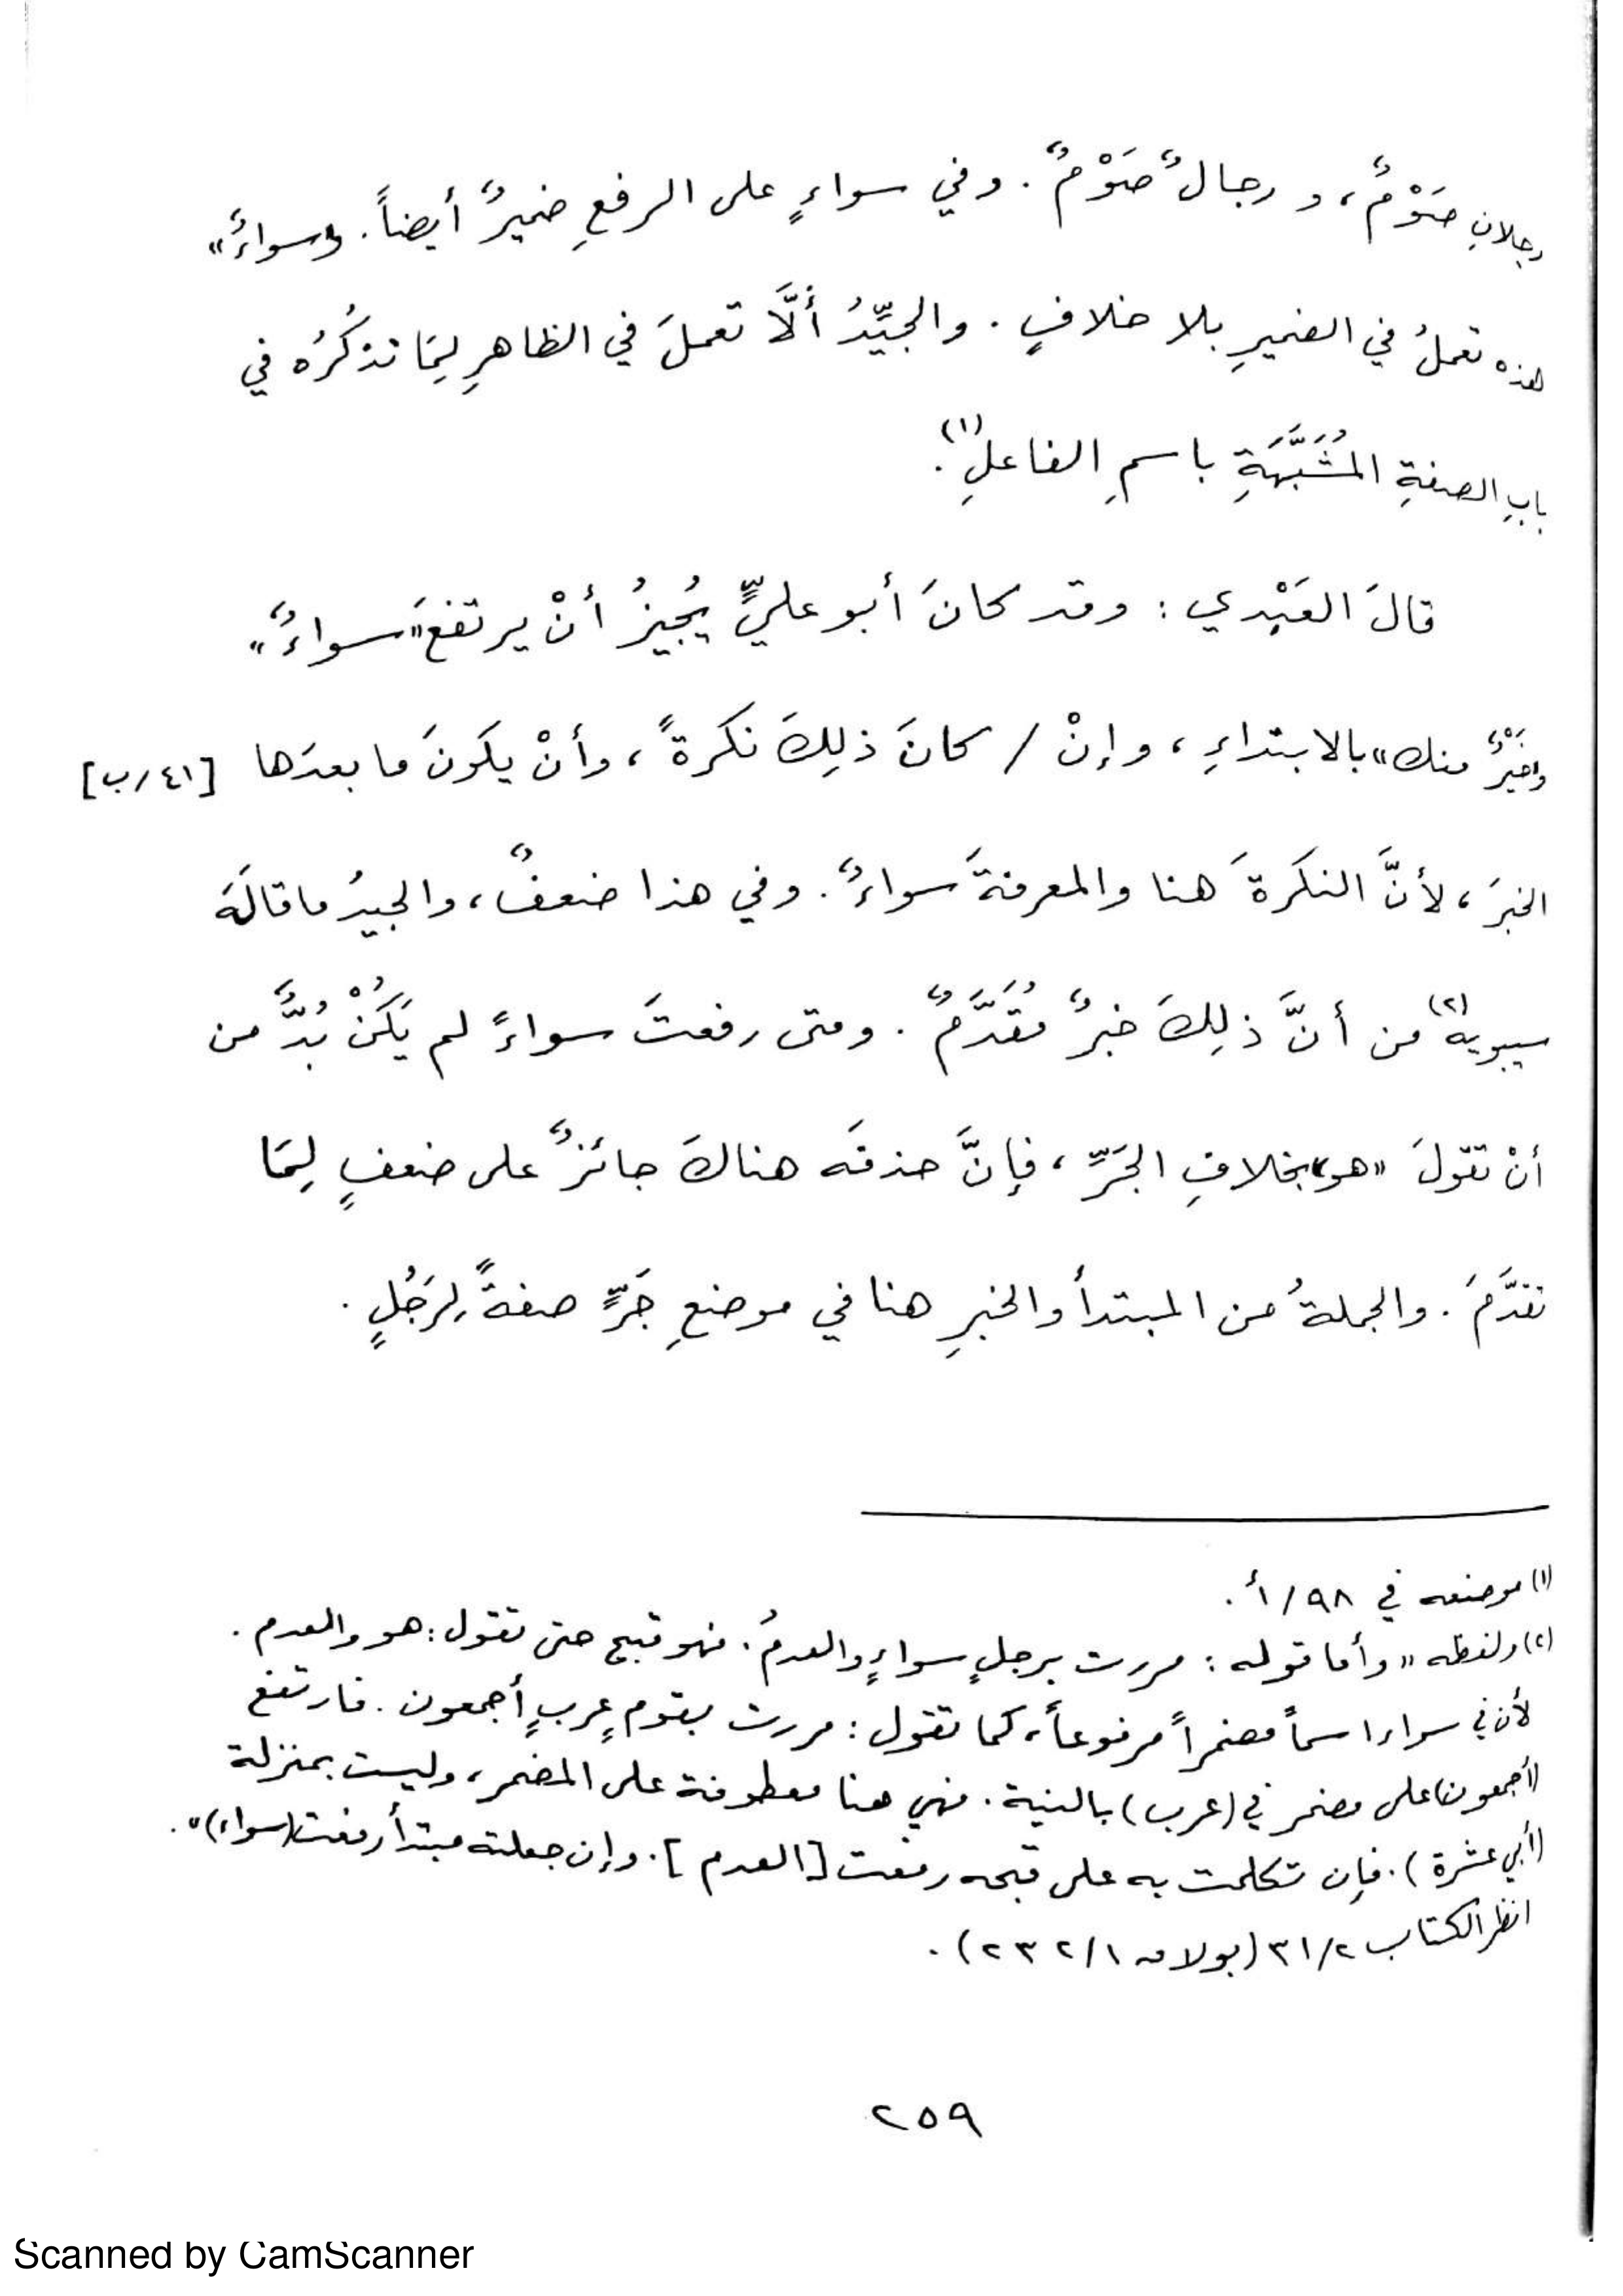 رجلانِ صَوْمٌ، و رجالٌ صَوْمٌ. وفي سواءٍ على الرفعِ ضميرٌ أيضاً. و«سواءٌ»
هذه تعملُ في الضميرِ بلا خلافٍ. والجيِّدُ ألَّا تعملَ في الظاهرِ لِمَا تذكُرُه في
بابِ الصفةِ المُشَبَّهَةِ باسمِ الفاعلِ(١).
قالَ العَبْدي: وقد كانَ أبو عليٍّ يُجيزُ أنْ يرتفعَ «سواءٌ»
و«خيرٌ منك» بالابتداءِ، وإنْ / كانَ ذلِكَ نكرةً، وأنْ يكونَ ما بعدَها [٤١/ب]
الخبرَ، لأنَّ النكرةَ هنا والمعرفةَ سواءٌ. وفي هذا ضعفٌ، والجيدُ ما قالَهَ
سيبويه(٢) من أنَّ ذلِكَ خبرٌ مُقَدَّمٌ. ومتى رفعتَ سواءً لم يَكُنْ بُدٌّ من
أنْ تقولَ «هو» بخلافِ الجَرِّ، فإنَّ حذفَه هناكَ جائزٌ على ضعفٍ لِمَا
تقدَّمَ. والجملةُ من المبتدأ والخبرِ هنا في موضعِ جَرٍّ صفةً لِرَجُلٍ.
(١) موضعه في ٩٨/أ.
(٢) ولفظه «وأما قوله: مررت برجلٍ سواءٍ والعدمُ. فهو قبيح حتى تقول: هو والعدم.
لأن في سواء اسماً مضمراً مرفوعاً، كما تقول: مررت بقومٍ عربٍ أجمعون. فارتفع
(أجمعون) على مضمر في (عرب) بالنية. فهي هنا معطوفة على المضمر، وليست بمنزلة
(أبي عشرة). فإن تكلمت به على قبحه رفعت [العدم]. وإن جعلته مبتدأ رفعت (سواء)».
انظر الكتاب ٣١/٢ (بولاق ٢٣٢/١).
٢٥٩
Scanned by CamScanner